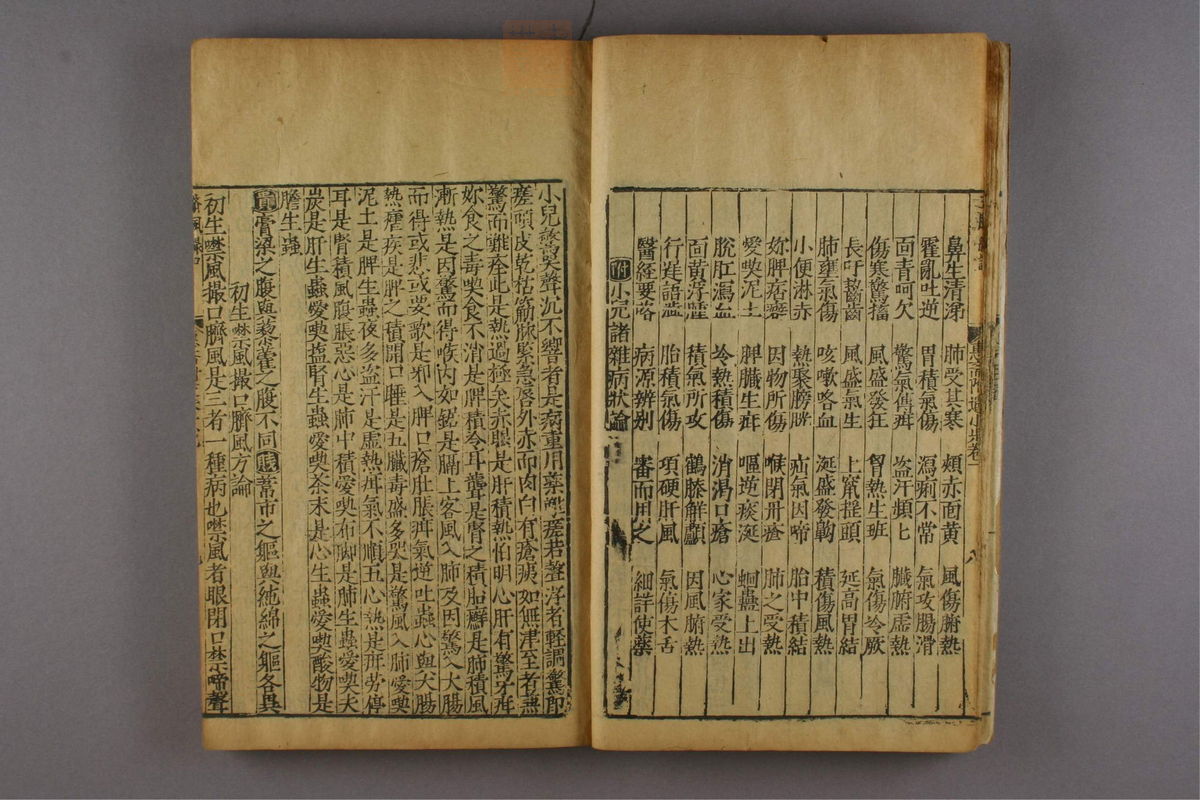 鼻生清涕 肺受其寒 頰赤面黃 風傷腑熱
霍亂吐逆 胃積氣傷 瀉痢不常 氣攻腸滑
面青呵欠 驚氣雋疳 盜汗頻 臟腑虛熱
傷寒驚搐 風盛發狂 胃熱生班 氣傷冷厥
長吁齧齒 風盛氣生 上竄搖頭 延高胃結
肺壅氣傷 咳嗽咯血 涎盛發齁 積傷風熱
小便淋赤 熱聚膀胱 疝氣因啼 胎中積結
妳脾痞癖 因物所傷 喉閉丹瘡 肺之受熱
愛喫泥土 脾臟生疳 嘔逆痰涎 蛔蟲上出
脫肛瀉血 冷熱積傷 消渴口瘡 心家受熱
面黃浮腫 積氣所攻 鶴膝解顱 因風腑熱
行遲語澁 胎積氣傷 項硬肝風 氣傷木舌
醫經要略 病源辨別 審而用之 細詳使藥
附小兒諸雜病狀論
小兒驚哭聲沉不響者是病重用藥 瘥若聲浮者輕調驚即
瘥頭皮乾枯筋脉緊急唇外赤而肉白有瘡痍如無津至者無
驚而難痊此是熱過極矣赤眼是肝積熱怕明心肝有驚牙疳
妳食之毒喫食不消是脾積冷耳聾是腎之積胎癬是肺積風
漸熱是因驚而得喉內如鋸是膈上客風入肺及因驚入大腸
而得或悲或要歌是邪入脾口瘡肚脹疳氣逆吐蟲心與大腸
熱瘧疾是脾之積開口睡是五臟毒盛多哭是驚風入肺愛喫
泥土是脾生蟲夜多盜汗是虛熱疳氣不順五心熱是疳勞停
耳是腎積風腹脹惡心是肺中積愛喫布脚是肺生蟲愛喫大
炭是肝生蟲愛喫塩腎生蟲愛喫茶末是心生蟲愛喫酸物是
膽生蟲
膏梁之腹與藜藿之腹不同 蓄市之軀與純綿之軀各異
初生噤風撮口臍風方論
初生噤風撮口臍風是三者一種病也噤風者眼閉口禁啼聲